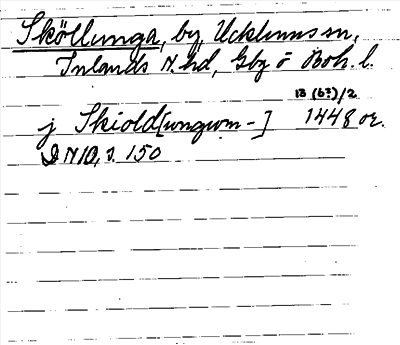 Sköllunga, by, Ucklums sn,
Inlands N. hd, Gbg o Boh. l.
13 (6?)/2
j Skiold[ungum-] 1448 or.
DN 10, s. 150